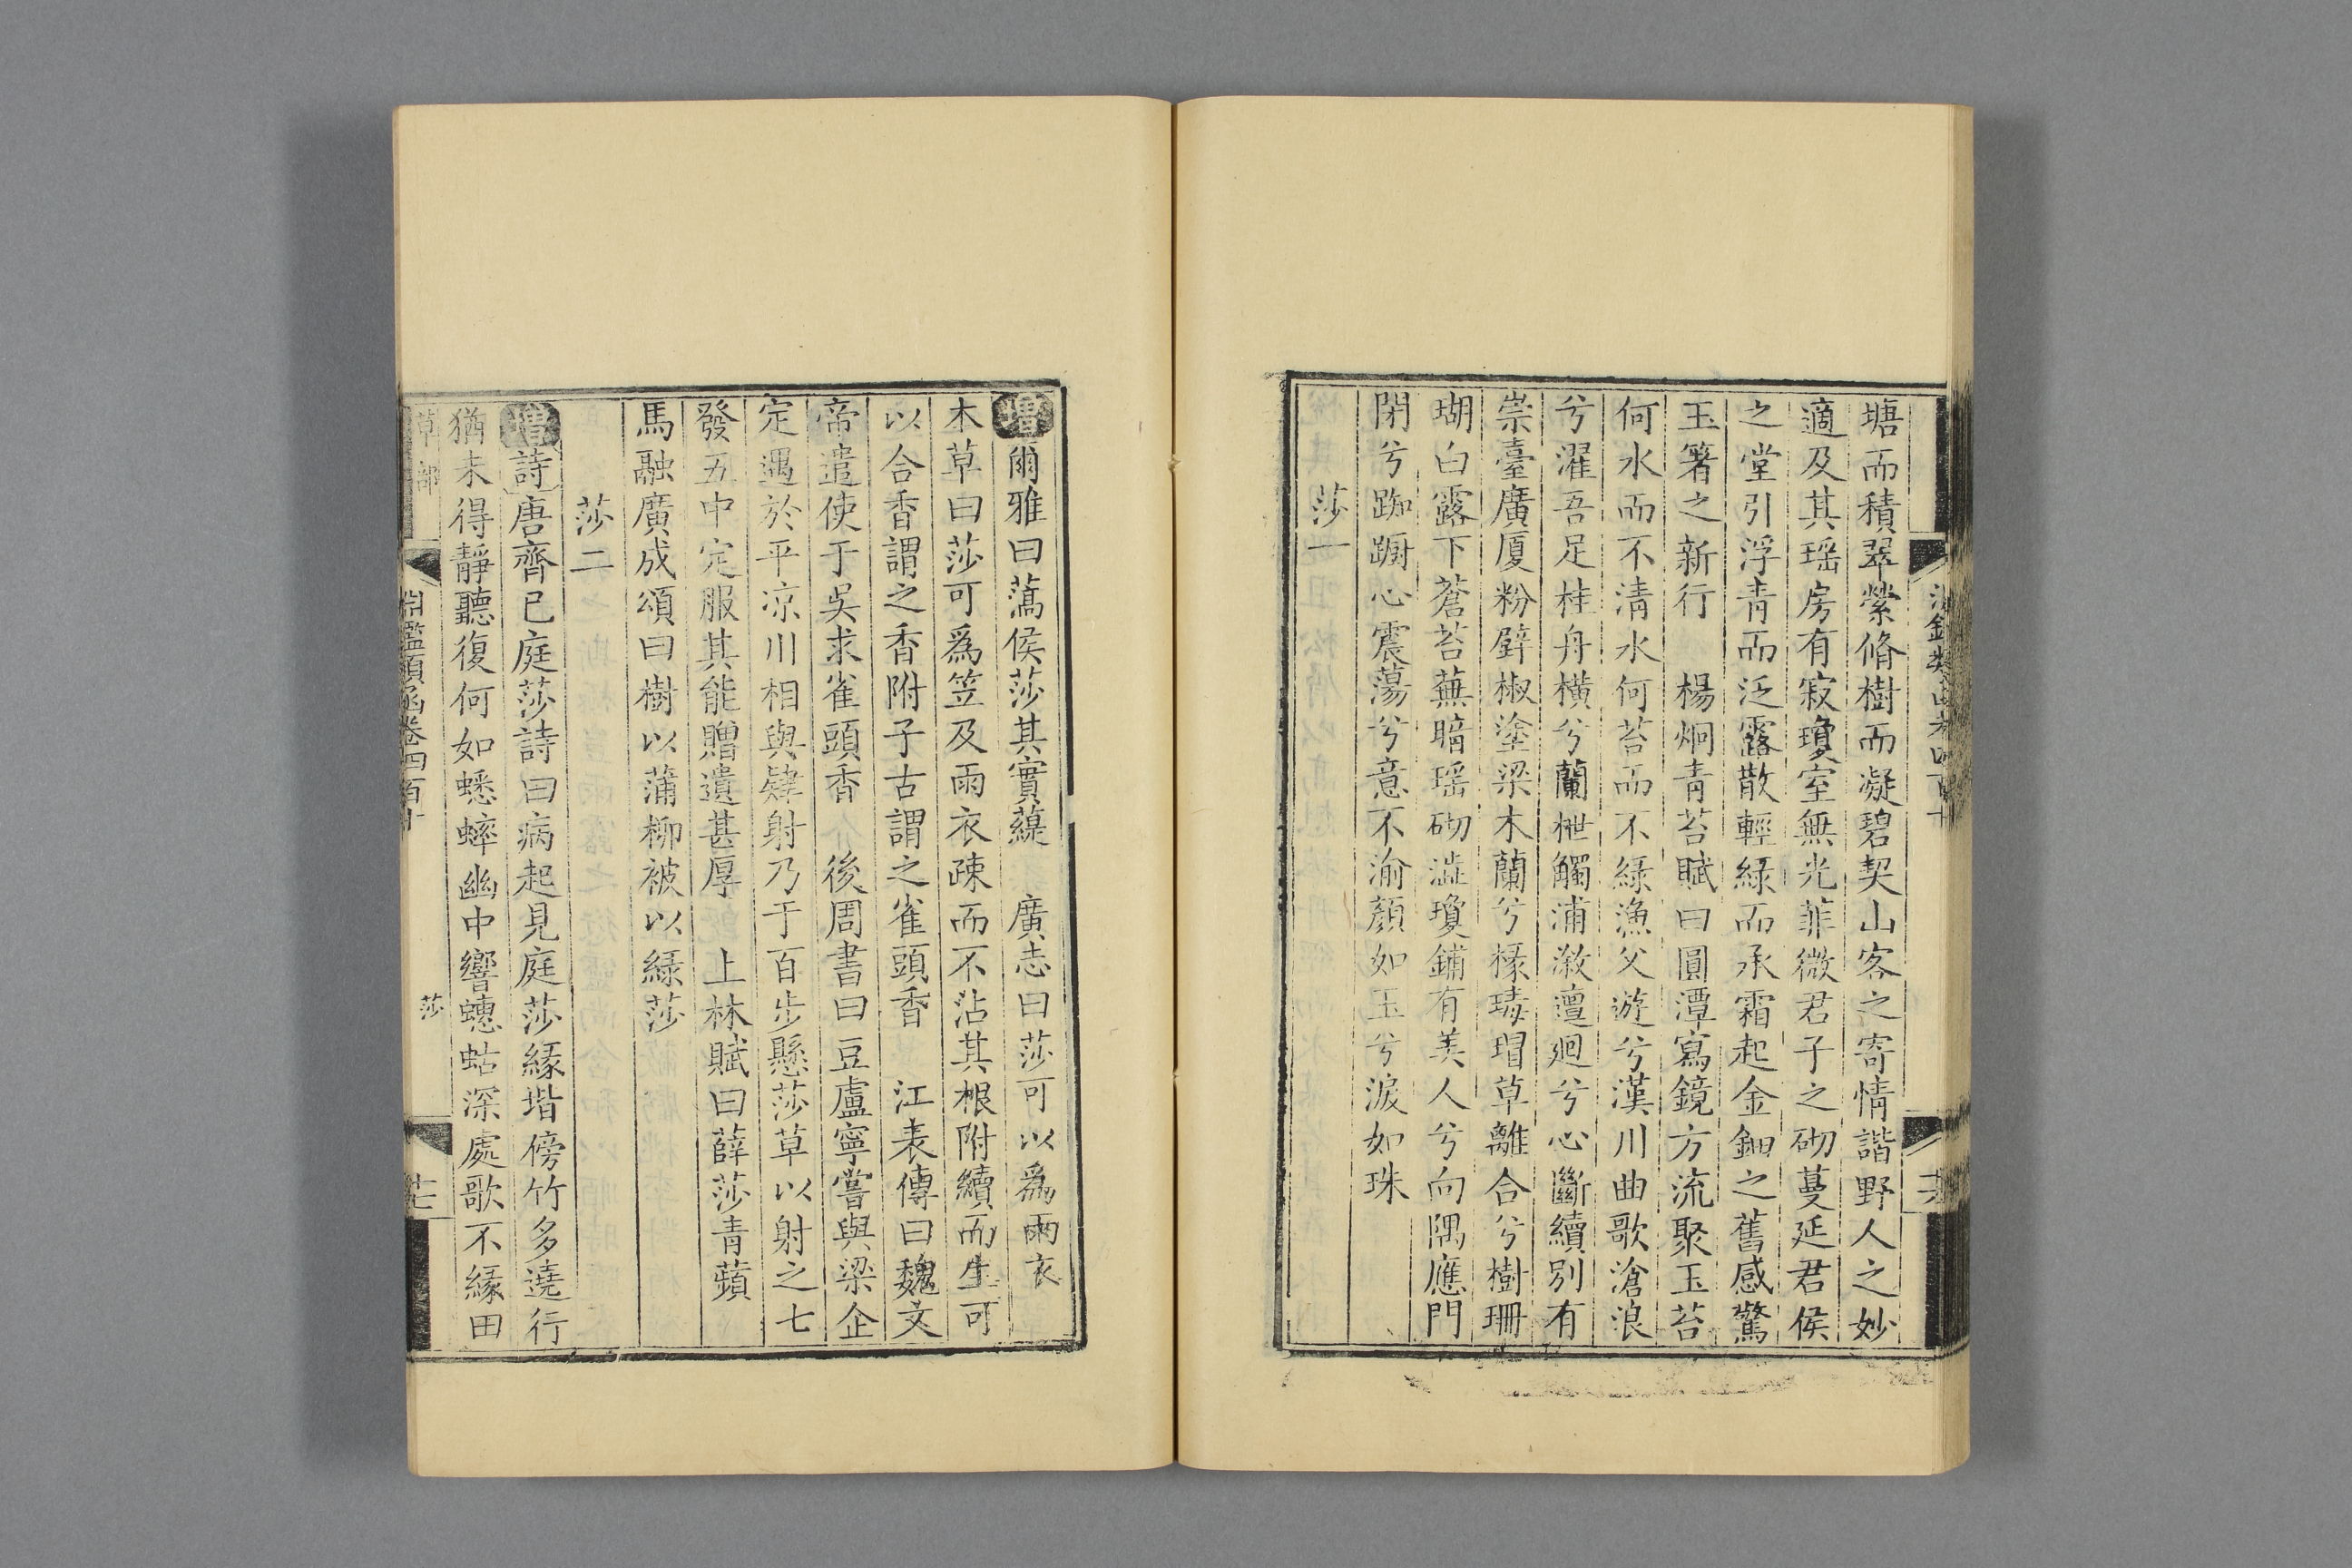 塘而積翠縈脩樹而凝碧契山客之寄情諧野人之妙
適及其瑶房有寂瓊室無光菲微君子之砌蔓延君侯
之堂引浮青而泛露散輕綠而承霜起金鈿之舊感驚
玉箸之新行　楊炯青苔賦曰圓潭寫鏡方流聚玉苔
何水而不清水何苔而不綠漁父遊兮漢川曲歌滄浪
兮濯吾足桂舟橫兮蘭枻觸浦溆邅迴兮心斷續別有
崇臺廣厦粉壁椒塗梁木蘭兮椽瑇瑁草離合兮樹珊
瑚白露下蒼苔蕪暗瑶砌澁瓊鋪有美人兮向隅應門
閉兮踟蹰心震蕩兮意不渝顏如玉兮淚如珠
莎一
增爾雅曰薃侯莎其實媞　廣志曰莎可以爲雨衣
本草曰莎可爲笠及雨衣疎而不沾其根附續而生可
以合香謂之香附子古謂之雀頭香　江表傳曰魏文
帝遣使于吳求雀頭香　後周書曰豆盧寧嘗與梁企
定遇於平凉川相與肄射乃于百步懸莎草以射之七
發五中定服其能贈遺甚厚　上林賦曰薛莎青薠
馬融廣成頌曰樹以蒲柳被以綠莎
莎二
增詩唐齊已庭莎詩曰病起見庭莎緣堦傍竹多遶行
猶未得靜聽復何如蟋蟀幽中響蟪蛄深處歌不緣田
草部
淵鑑類函卷四百十
莎
廿七